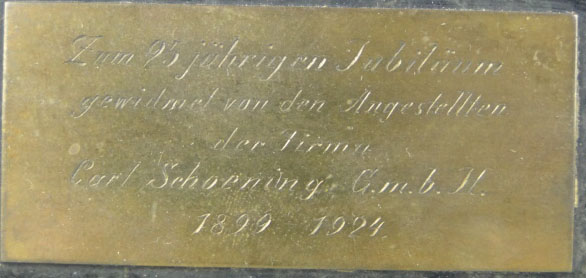 Zum 25 jährigen Jubiläum
gewidmet von den Angestellten
der Firma
Carl Schoening G.m.b.H.
1899 1924